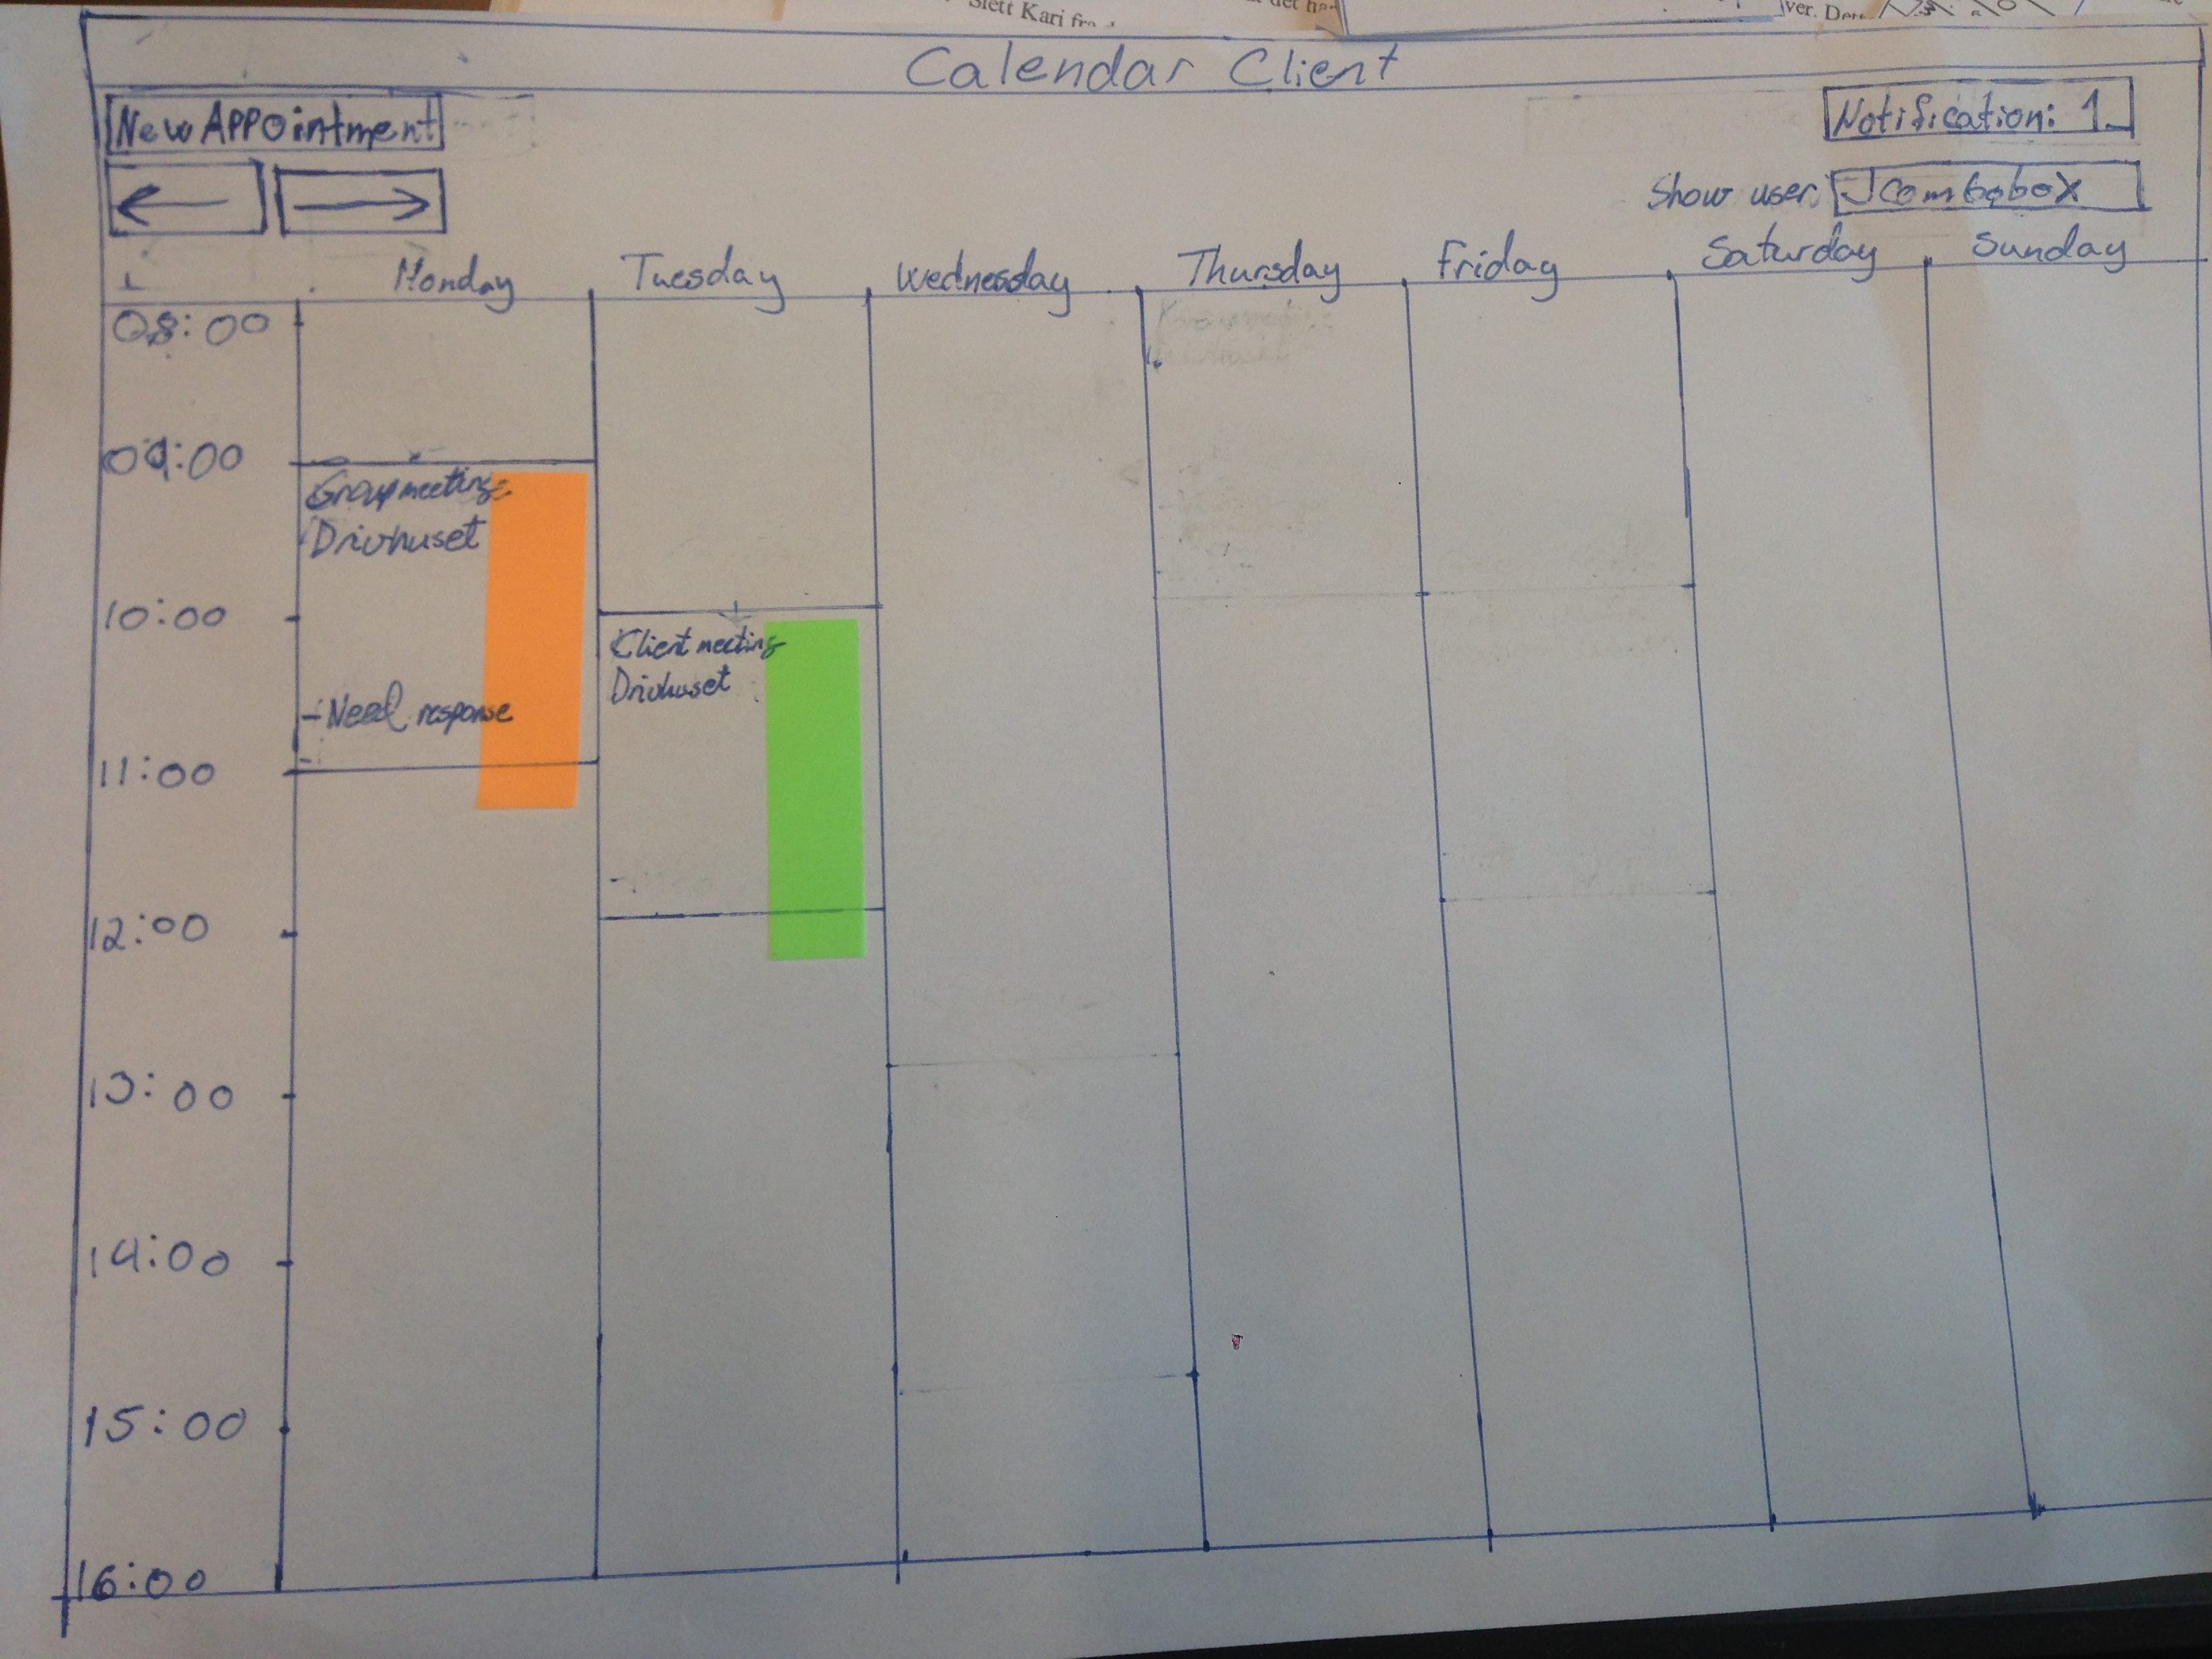 Slett Kari fra
det har
ver. Der
Calendar Client
New APPointment
Notification: 1
Show user: Jcombobox
Monday Tuesday Wednesday Thursday Friday Saturday Sunday
08:00
09:00
Groupmeeting
Drivhuset
10:00
Client meeting
Drivhuset
- Need response
11:00
12:00
13:00
14:00
15:00
16:00